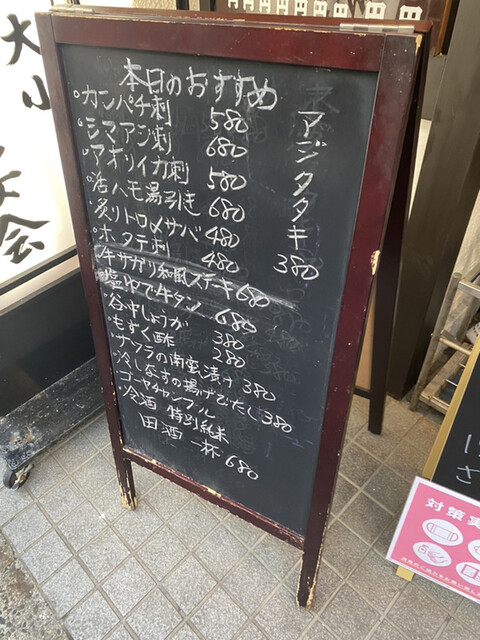 本日のおすすめ
・カンパチ刺 580
・シマアジ刺 680
・アオリイカ刺 580
・活ハモ湯引き 680
・炙りトロ〆サバ 480
・ホタテ刺 480
・牛サガリ和風ステーキ 680
・塩ゆで牛タン 680
・谷中しょうが 380
・もずく酢 280
・ナツラの南蛮漬け 380
・冷しなすの揚げびたし 380
・ゴーヤチャンプル
・冷酒 特別純米
田酒 一杯 680
アジタタキ 380
会
対策実